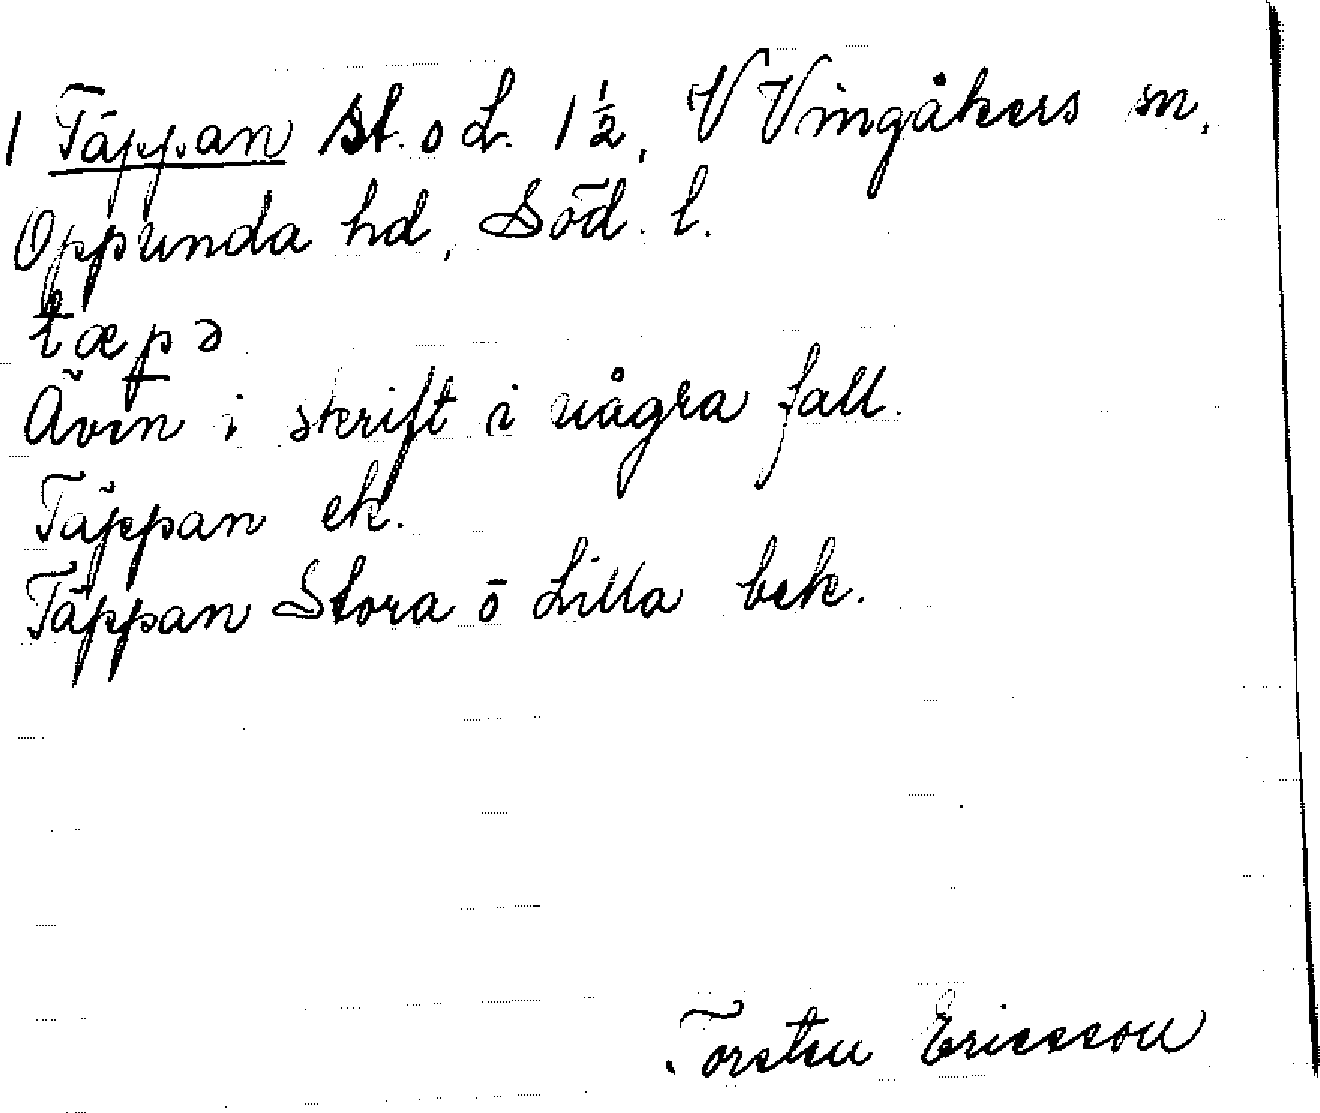 1 Täppan St. o L. 1 ½, V Vingåkers sn,
Oppunda hd, Söd. l.
tæpə
Även i skrift i några fall.
Täppan ek.
Täppan Stora o Lilla bek.
Torsten Ericsson